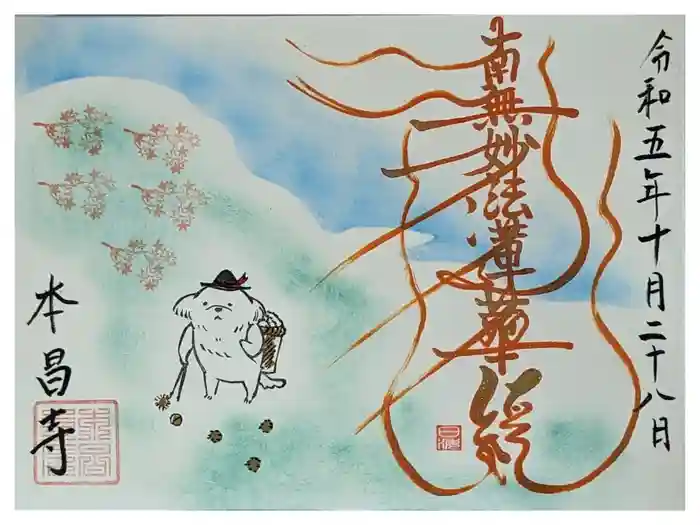 令和五年十月二十八日
南無妙法蓮華経
本昌寺